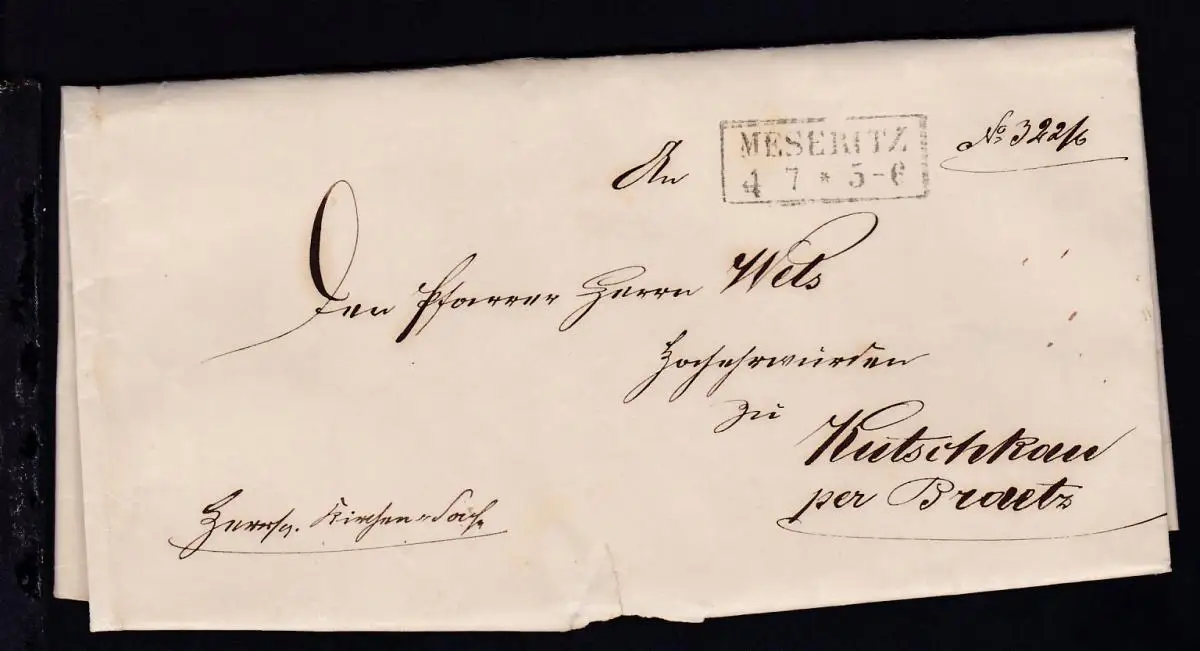 MESERITZ
4 7 * 5-6
No 322/6
An
Den Pfarrer Herrn Wels
Hochehrwürden
zu
Kutschkau
per Braetz
Kirchen-Sache